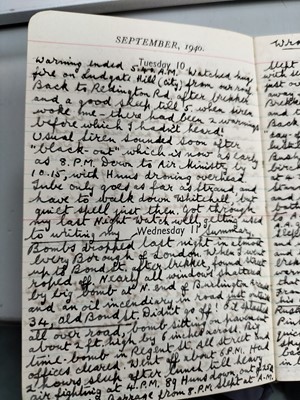 SEPTEMBER, 1940.
Tuesday 10
Warning ended 5.40 A.M. Watched big
fire on Ludgate Hill (City) from our roof
Back to Kensington Rd after brekker
and a good sleep till 5, when siren
woke me – there had been 2 warnings
before which I hadn't heard!
Usual siren sounded soon after
"black-out" which is now so early
as 8.P.M. Down to Air Ministry by
10.15, with Huns droning overhead
Tube only goes as far as Strand, and
have to walk down Whitehall, but
quiet spell just then. Got through
my last night watch, well, getting used
to writing my summary.
Wednesday 11
Bombs dropped last night in almost
every Borough of London. When I went
up to Bond St. after brekker, found street
roped off. Nearly all windows shattered
by big bomb at N. end of Burlington Arcade
and an oil incendiary in road just outside
34, Old Bond St. Didn't go off!
all over road, bomb sitting on pavement
about 2 ft. high by 6 inches across. Big
time-bomb in Regent St. All street &
offices cleared. Went off about 6 P.M. Had
2 hours sleep after lunch till heavy
air fighting at 4.P.M. 89 Huns down, out of 250
Barrage from 8.P.M. Slept at A.M.